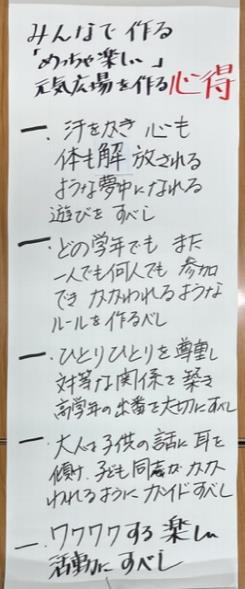 みんなで作る
「めっちゃ楽しい」
元気広場を作る心得
一. 汗をかき 心も
体も解放される
ような夢中になれる
遊びを すべし
一. どの学年でも また
一人でも何人でも 参加
でき かかわれるような
ルールを作るべし
一. ひとりひとりを尊重し
対等な関係を築き
高学年の出番を大切にすべし
一. 大人は子供の話に耳を
傾け、子ども同志がかか
われるようにガイドすべし
一. ワクワクする楽しい
活動にすべし